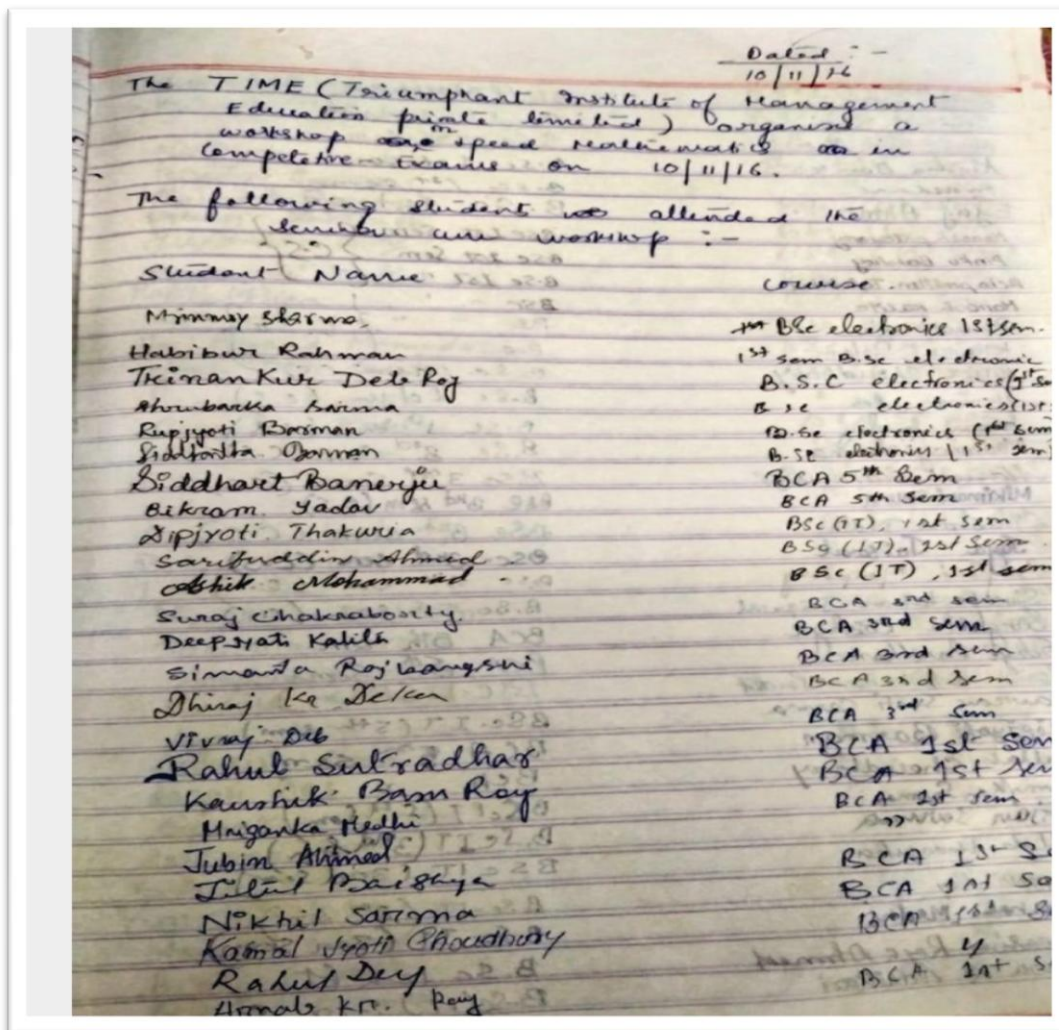 Dated :-
10/11/16
The TIME (Triumphant Institute of Management
Education private limited) organised a
workshop on speed mathematics in
Competetive Exams on 10/11/16.
The following students attended the
Seminar cum workshop :-
Student Name course.
Mrinmoy Sharma, BSc electronics 1st sem.
Habibur Rahman 1st sem B.sc electronic
Trinankur Deb Roy B.S.C electronics (1st
Sarma B sc electronics (1st
Rupjyoti Barman B.Sc electronics (1st sem
Siddhartha Barman B.Sc electronics (1st sem)
Siddhart Banerjee BCA 5th Sem
Bikram Yadav BCA 5th Sem
Dipjyoti Thakuria BSc (IT), 1st sem
Sarifuddin Ahmed BSc (IT), 1st Sem
Ashik Mohammad. BSc (IT), 1st sem
Suraj Chakraborty. BCA 3rd sem
Deepjyoti Kalita BCA 3rd Sem
Simanta Rajbangshi BCA 3rd Sem
Dhiraj Kr Deka BCA 3rd Sem
Vivraj Deb BCA 3rd Sem
Rahul Sutradhar BCA 1st Sem
Kaushik Basu Roy BCA 1st Sem
Mriganka Medhi BCA 1st sem
Jubin Ahmed "
Baishya BCA 1st
Nikhil Sarma BCA 1st
Kamal Jyoti Choudhury BCA 1st
Rahul Dey "
Arnab Kr. Roy BCA 1st